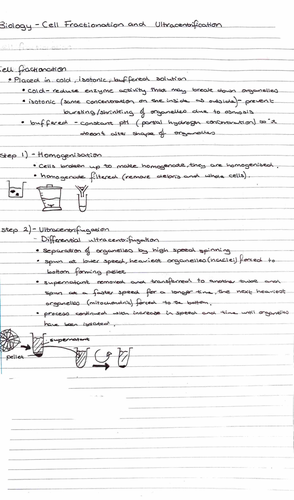 Biology - Cell Fractionation and Ultracentrification
Cell fractionation
• Placed in cold, isotonic, buffered solution
• cold - reduce enzyme activity that may break down organelles
• isotonic (same concentration on the inside to outside) - prevent
bursting/shrinking of organelles due to osmosis
• buffered - constant pH (partial hydrogen concentration) so it
doesn't alter shape of organelles
Step 1) - Homogenisation
• Cells broken up to make homogenate, they are homogenised.
• homogenate filtered (remove debris and whole cells).
Step 2) - Ultracentrifugation
- Differential ultracentrifugation
• Separation of organelles by high speed spinning
• Spun at lower speed, heaviest organelles (nuclei) forced to
bottom forming pellet
• supernatant removed and transferred to another tube and
spun at a faster speed for a longer time, the next heaviest
organelles (mitochondria) forced to the bottom.
• process continued with increase in speed and time until organelles
have been isolated.
supernatant
pellet